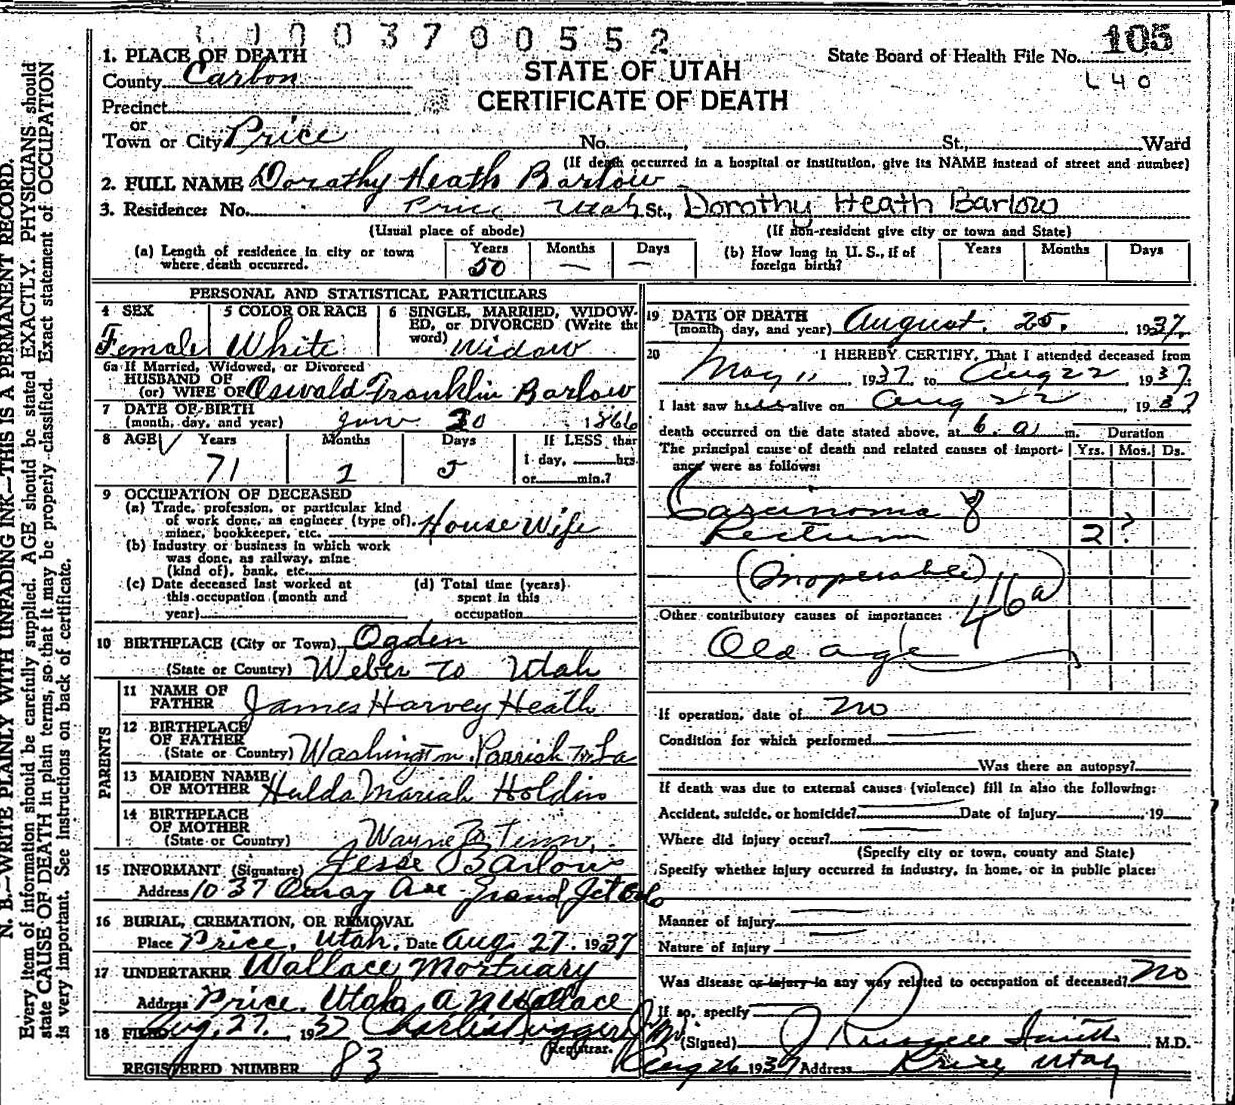 1003700552
1. PLACE OF DEATH
County Carbon
Precinct
or
Town or City Price No. , St., Ward
STATE OF UTAH
CERTIFICATE OF DEATH
State Board of Health File No. 105
L40
(If death occurred in a hospital or institution, give its NAME instead of street and number)
2. FULL NAME Dorathy Heath Barlow
3. Residence: No. Price Utah St., Dorothy Heath Barlow
(Usual place of abode) (If non-resident give city or town and State)
(a) Length of residence in city or town where death occurred. Years 50 Months — Days —
(b) How long in U. S., if of foreign birth? Years Months Days
PERSONAL AND STATISTICAL PARTICULARS
4 SEX Female
5 COLOR OR RACE White
6 SINGLE, MARRIED, WIDOWED, or DIVORCED (Write the word) Widow
6a If Married, Widowed, or Divorced
HUSBAND OF
(or) WIFE OF Oswald Franklin Barlow
7 DATE OF BIRTH
(month, day, and year) June 20 1866
8 AGE Years 71 Months 2 Days 5 If LESS than
1 day, hrs.
or min.?
9 OCCUPATION OF DECEASED
(a) Trade, profession, or particular kind
of work done, as engineer (type of),
miner, bookkeeper, etc. House Wife
(b) Industry or business in which work
was done, as railway, mine
(kind of), bank, etc.
(c) Date deceased last worked at
this occupation (month and
year)
(d) Total time (years)
spent in this
occupation
10 BIRTHPLACE (City or Town) Ogden
(State or Country) Weber Co Utah
PARENTS
11 NAME OF
FATHER James Harvey Heath
12 BIRTHPLACE
OF FATHER
(State or Country) Washington Parrish La
13 MAIDEN NAME
OF MOTHER Hulda Mariah Holdin
14 BIRTHPLACE
OF MOTHER
(State or Country) Wayne Co Tenn.
15 INFORMANT (Signature) Jesse Barlow
Address 1037 Ouray Ave - Grand Jct Colo
16 BURIAL, CREMATION, OR REMOVAL
Place Price, Utah. Date Aug. 27. 1937
17 UNDERTAKER Wallace Mortuary
Address Price, Utah. A N Wallace
18 FILED Aug. 27. 1937
Registrar.
REGISTERED NUMBER 83
19 DATE OF DEATH
(month, day, and year) August. 25. 1937.
20 I HEREBY CERTIFY, That I attended deceased from
May 11 1937 to Aug 22 1937.
I last saw her alive on Aug 22, 1937
death occurred on the date stated above, at 6. a m. Duration
The principal cause of death and related causes of importance were as follows: Yrs. Mos. Ds.
Carcinoma of
Rectum 2 ?
(Inoperable) 46a
Other contributory causes of importance:
Old age
If operation, date of no
Condition for which performed
Was there an autopsy?
If death was due to external causes (violence) fill in also the following:
Accident, suicide, or homicide? Date of Injury 19
Where did injury occur?
(Specify city or town, county and State)
Specify whether injury occurred in industry, in home, or in public place:
Manner of injury
Nature of injury
Was disease or injury in any way related to occupation of deceased? no
If so, specify
(Signed) J Russell Smith M.D.
Aug 26 1937 Address Price Utah
N. B.—WRITE PLAINLY WITH UNFADING INK—THIS IS A PERMANENT RECORD.
Every item of information should be carefully supplied. AGE should be stated EXACTLY. PHYSICIANS should
state CAUSE OF DEATH in plain terms, so that it may be properly classified. Exact statement of OCCUPATION
is very important. See instructions on back of certificate.